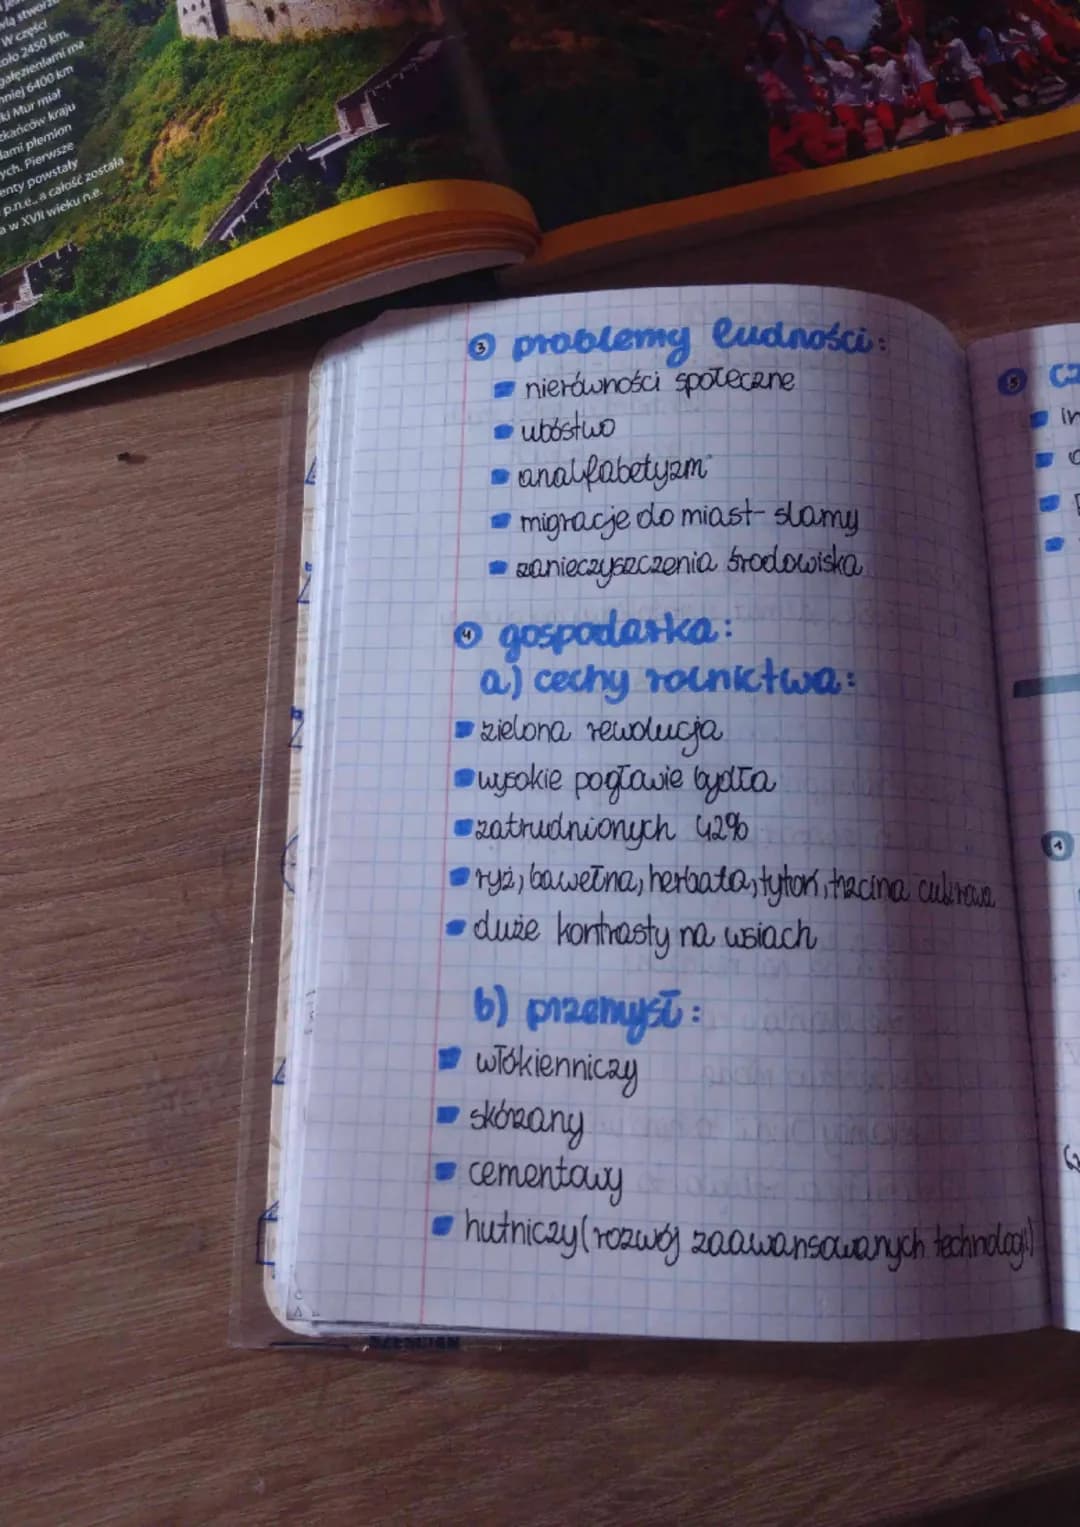 W części
2450 km.
6400 km
Mur miał
kraju
plemion
Pierwsze
powstały
p.n.e., a całość została
w XVII wieku n.e.
3 problemy ludności:
nierówności społeczne
ubóstwo
analfabetyzm
migracje do miast - slamy
zanieczyszczenia środowiska
4 gospodarka:
a) cechy rolnictwa:
zielona rewolucja
wysokie pogłowie bydła
zatrudnionych 42%
ryż, bawełna, herbata, tytoń, trzcina cukrowa
duże kontrasty na wsiach
b) przemysł:
włókienniczy
skórzany
cementowy
hutniczy (rozwój zaawansowanych technologii)
5
1